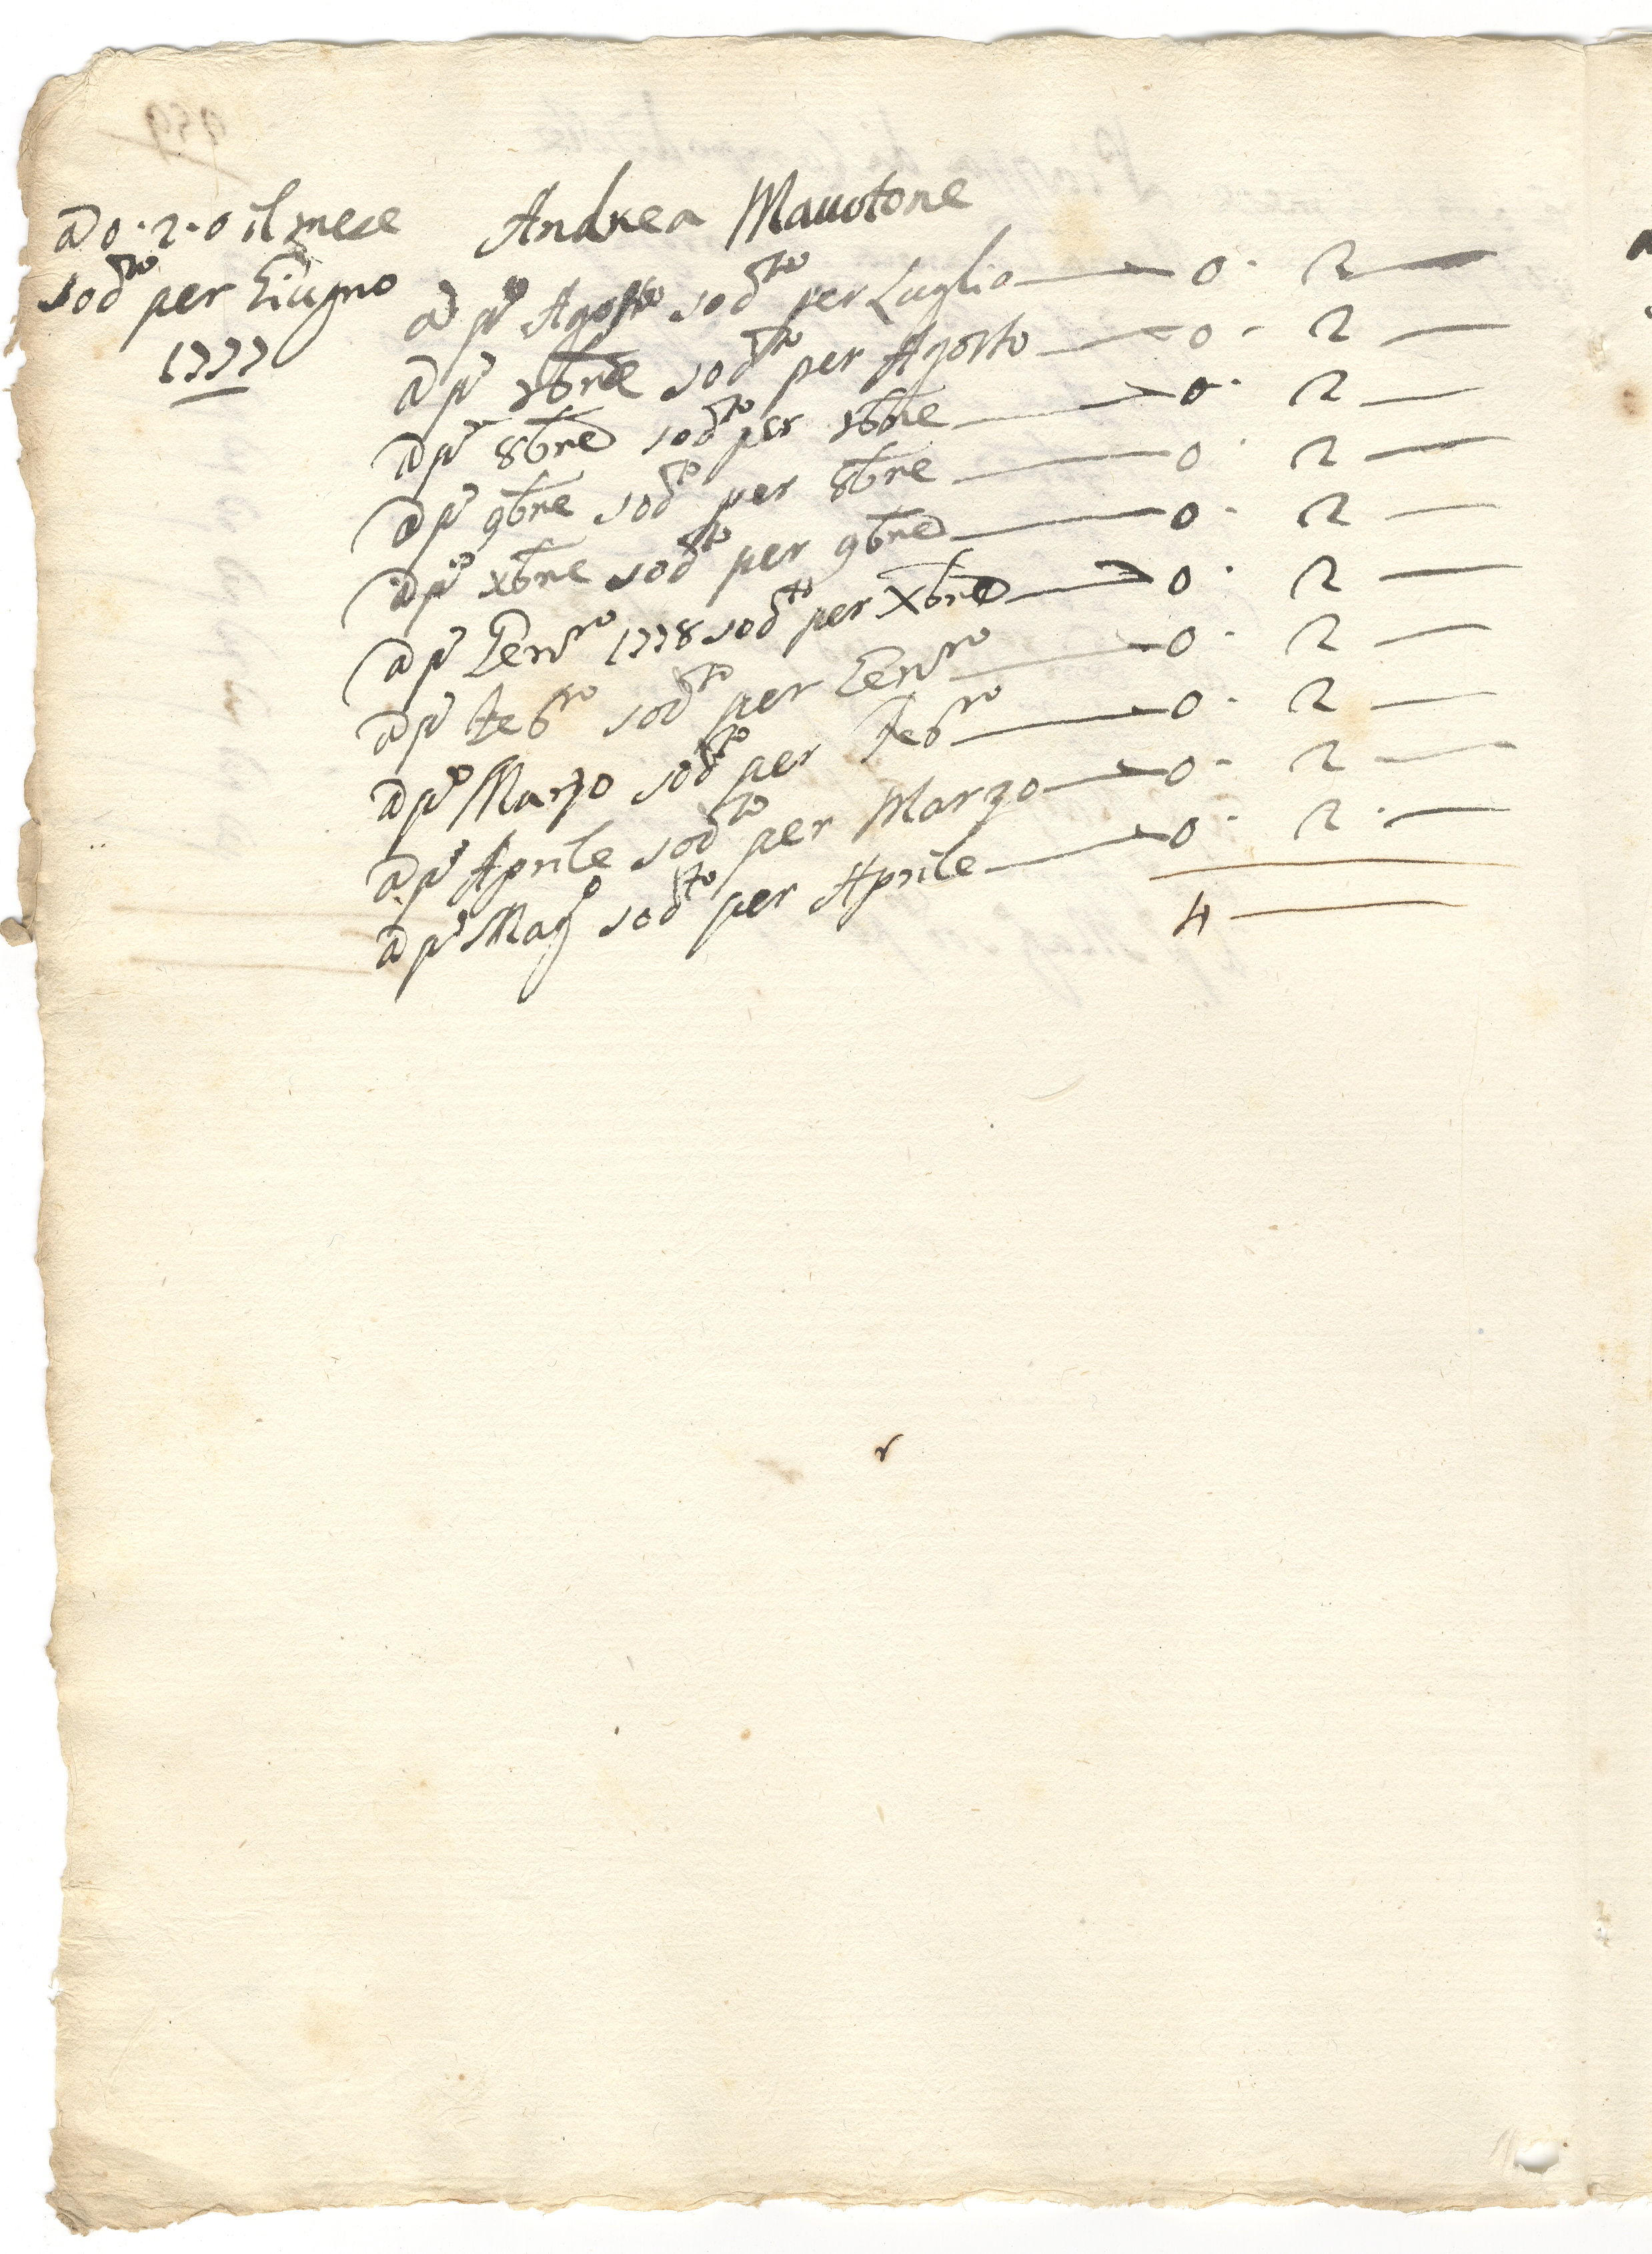 a 0.2.0 il mese
sodto per Giugno
1777
Andrea Mauotone
a pº Agosto sodto per Luglio — 0. 2 —
a pº 7bre sodto per Agosto — 0. 2 —
a pº 8bre sodto per 7bre — 0. 2 —
a pº 9bre sodto per 8bre — 0 2 —
a pº xbre sodto per 9bre — 0. 2 —
a pº Gennro 1778 sodto per Xbre — 0. 2 —
a pº febro sodto per Gennro — 0. 2 —
a pº Marzo sodto per febro — 0. 2 —
a pº Aprile sodto per Marzo — 0. 2 —
a pº Magº sodto per Aprile — 0. 2. —
4 —